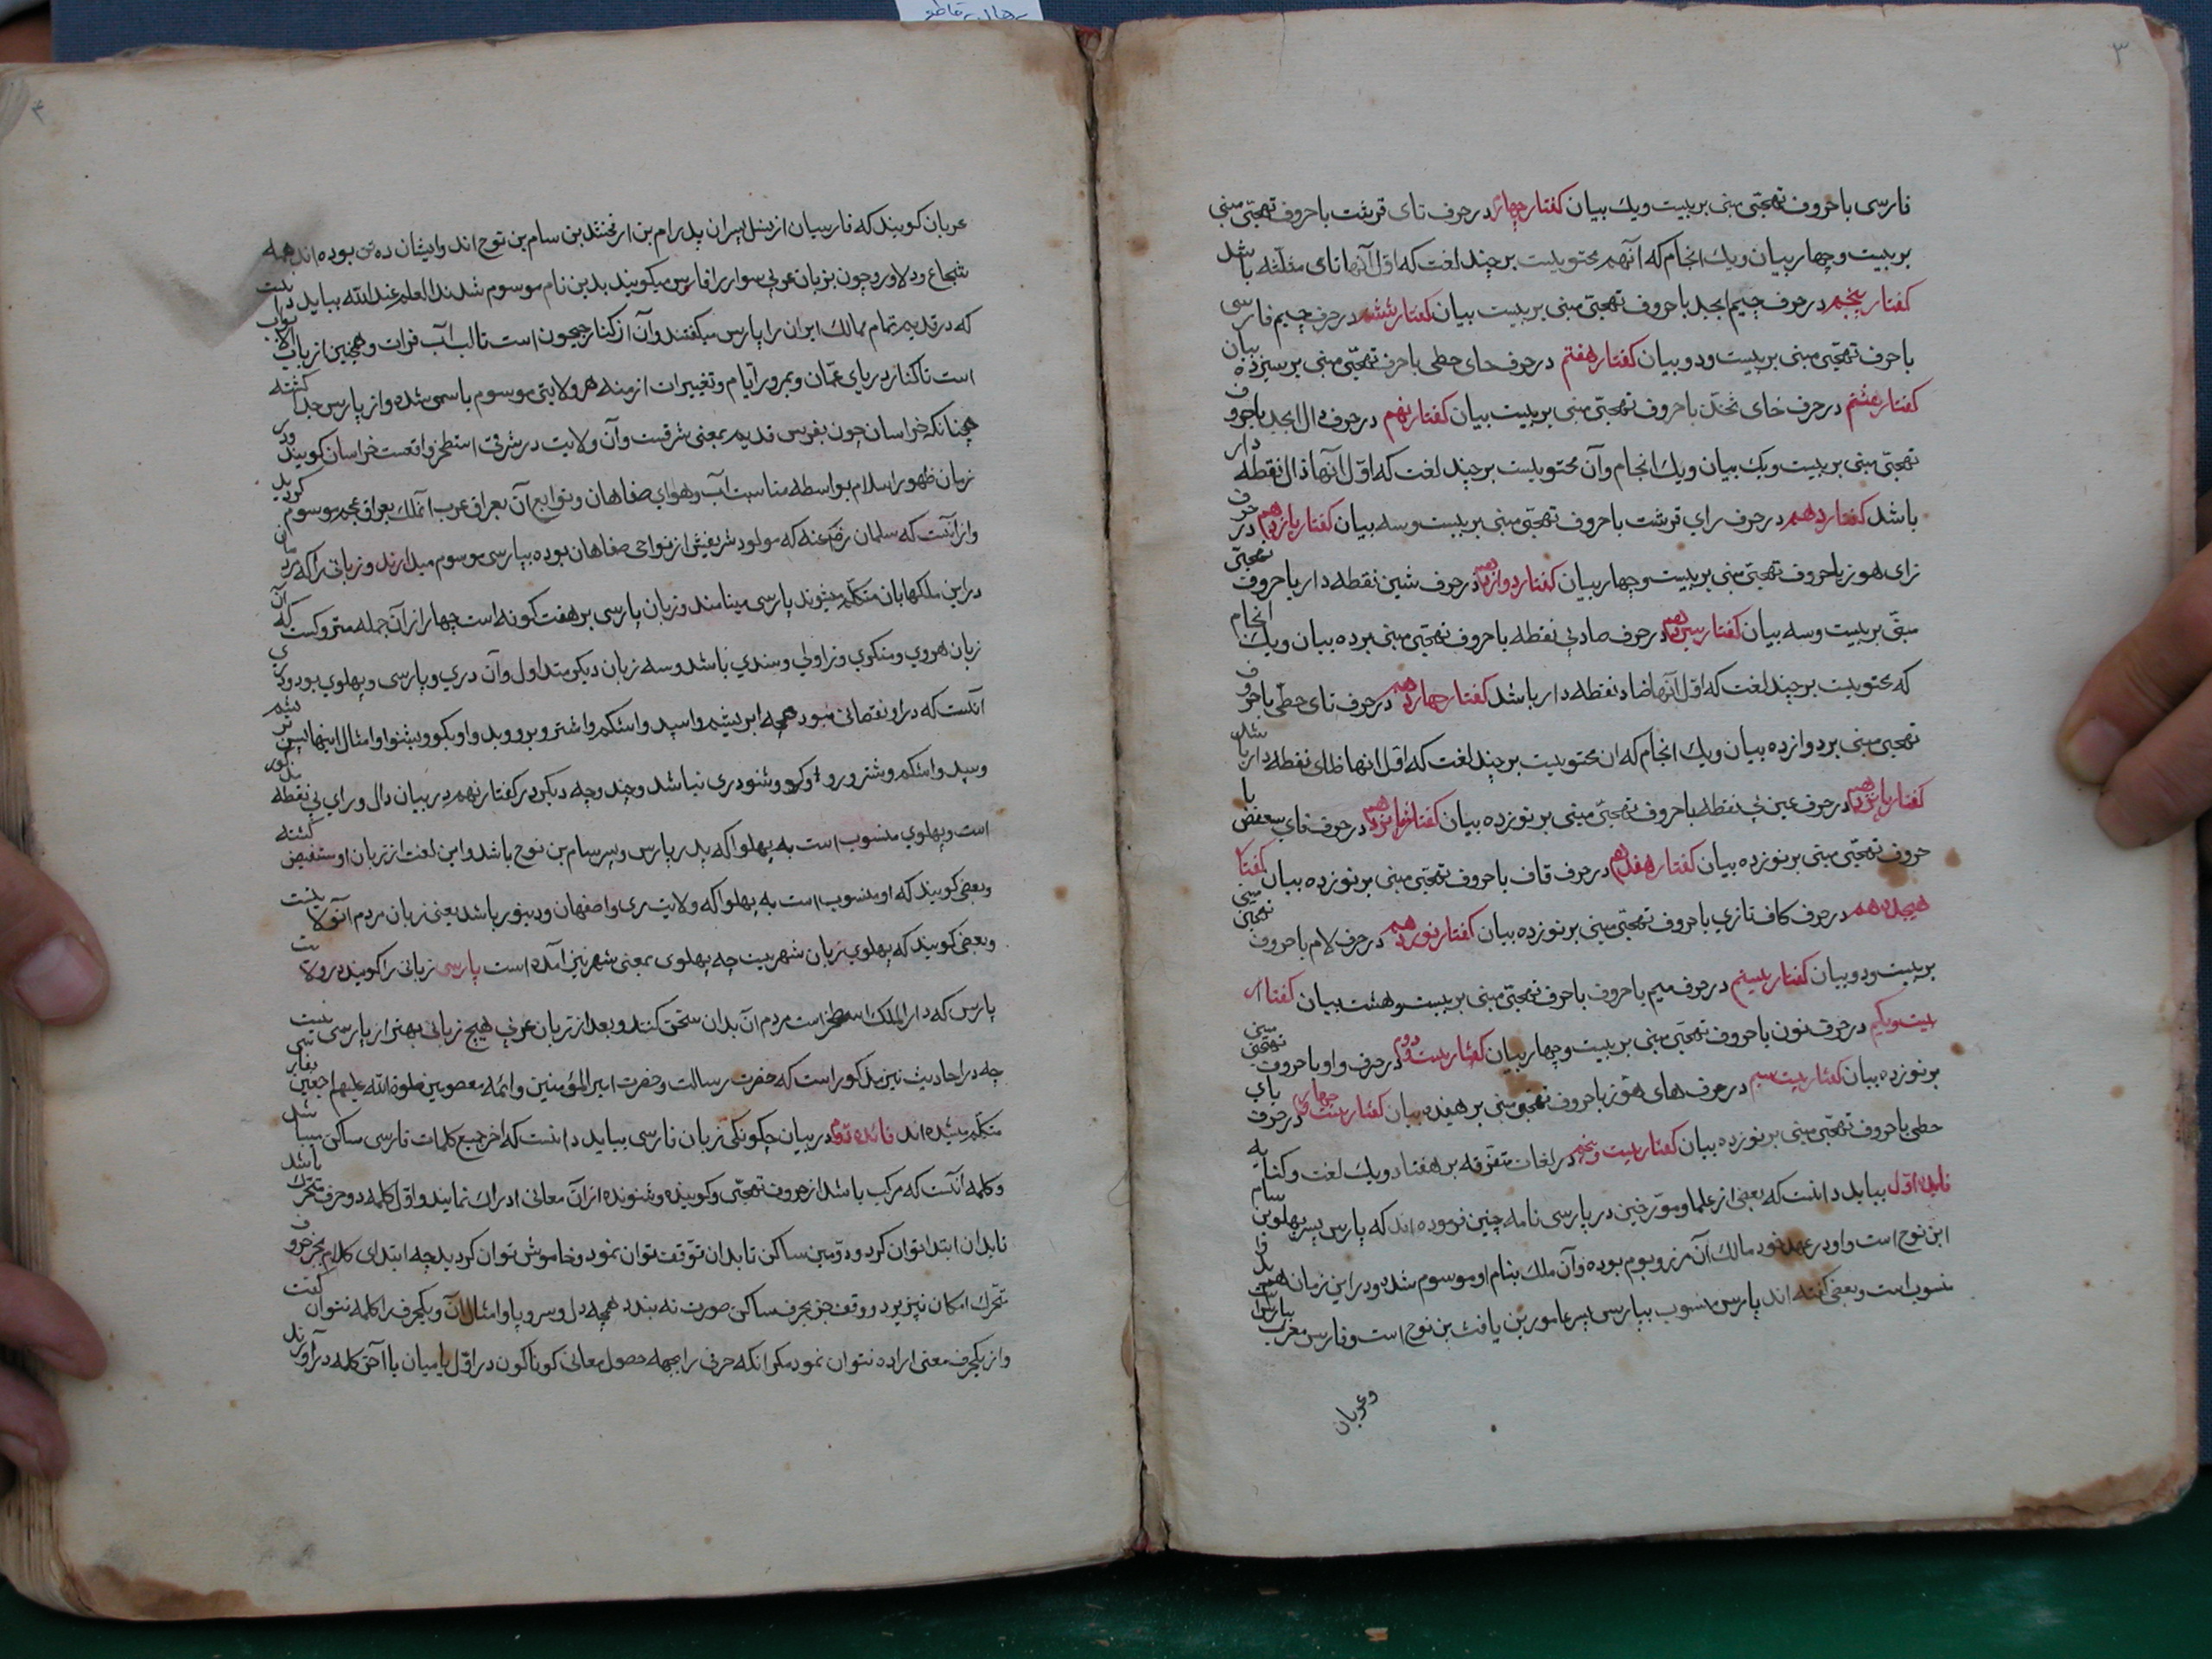 ۳
فارسی با حروف تهجّی مبنی بر بیست ویك بیان کفتار چهارم در حرف تای قرشت با حروف تهجّی مبنی
بر بیست و چهار بیان ویك انجام که آنهم محتویست بر چند لغت که اوّل آنها ثای مثلّثه باشد
کفتار پنجم در حرف جیم ابجد با حروف تهجّی مبنی بر بیست بیان کفتار ششم در حرف چیم فارسی
با حرف تهجّی مبنی بر بیست ودو بیان کفتار هفتم در حرف حای حطی با حرف تهجّی مبنی بر سیزده بیان
کفتار هشتم در حرف خای ثخّذ با حروف تهجّی مبنی بر بیست بیان کفتار نهم در حرف دال ابجد با حروف
تهجّی مبنی بر بیست ویك بیان ویك انجام وآن محتویست بر چند لغت که اوّل آنها ذال نقطه دار
باشد کفتار دهم در حرف رای قرشت با حروف تهجّی مبنی بر بیست وسه بیان کفتار یازدهم در حرف
زای هوز با حروف تهجّی مبنی بر بیست وچهار بیان کفتار دوازدهم در حرف شین نقطه دار با حروف تهجّی
مبنی بر بیست وسه بیان کفتار سیزدهم در حرف صاد بی نقطه با حروف تهجّی مبنی بر ده بیان ویك انجام
که محتویست بر چند لغت که اوّل آنها ضاد نقطه دار باشد کفتار چهاردهم در حرف تای حطّی با حروف
تهجی مبنی بر دوازده بیان ویك انجام که ان محتویست بر چند لغت که اوّل انها ظای نقطه دار باشد
کفتار پانزدهم در حرف عین بی نقطه با حروف تهجّی مبنی بر نوزده بیان کفتار شانزدهم در حرف فای سعفص با
حروف تهجّی مبنی بر نوزده بیان کفتار هفدهم در حرف قاف با حروف تهجّی مبنی بر نوزده بیان کفتار
هیجدهم در حرف کاف تازی با حروف تهجّی مبنی بر نوزده بیان کفتار نوزدهم در حرف لام با حروف تهجّی مبنی
بر بیست ودو بیان کفتار بیستم در حرف میم با حروف با حرف تهجّی مبنی بر بیست وهشت بیان کفتار
بیست ویکم در حرف نون با حروف تهجّی مبنی بر بیست و چهار بیان کفتار بیست ودوم در حرف واو با حروف تهجّی مبنی
بر نوزده بیان کفتار بیست سیم در حرف های هوّز با حروف تهجّی مبنی بر هفده بیان کفتار بیست چهارم در حرف یای
حطی با حروف تهجّی مبنی بر نوزده بیان کفتار بیست و پنجم در لغات متفرّقه بر هفتاد ویك لغت وکنایه
فایده اوّل بباید دانست که بعضی از علما و مورّخین در پارسی نامه چنین فرموده اند که پارس پسر پهلو بن سام
ابن نوح است واو در عهد خود مالك آن مرز وبوم بوده وآن ملك بنام او موسوم شد ودر این زمان
منسوب است وبعضی کفته اند پارس منسوب بپارس پسر عامور بن یافث بن نوح است وفارس معرب
وعربان
۴
عربان کویند که فارسیان از نسل پسران پدرام بن ارفخشد بن سام بن نوح اند وایشان ده تن بوده اند همه
شجاع ودلاور وچون بزبان عربی سوار را فارس میکویند بدین نام موسوم شدند العلم عند الله بباید دانست
که در قدیم تمام ممالك ایران را پارس میکفتند وآن از کنار جیحون است تا لب آب فرات وهمچنین از باب الابواب
است تا کنار دریای عمّان وبمرور آیّام وتغییرات ازمنه هر ولایتی موسوم باسمی شده واز پارس جدا کشته
همچنانکه خراسان چون بفرس قدیم بمعنی شرقست وآن ولایت در شرقی اسطخر واقعست خراسان کویند ودر
زمان ظهور اسلام بواسطه مناسبت آب وهوای صفاهان وتوابع آن بعراق عرب آنملك بعراق عجم موسوم کردید
وازآنست که سلمان رضی عنه که مولود شریفش از نواحی صفاهان بوده بپارسی موسوم میدارند وزبانی را که مردمان
در این ملکها بان متکلّم میشوند پارسی مینامند وزبان پارسی بر هفت کونه است چهار از آن جمله متروکست که آن
زبان هروی و سکزی و زاولی وسندی باشد وسه زبان دیکر متداول وآن دری و پارسی و پهلوی بود ودری
آنست که در او نقصانی نبود همچه ابریشم واسپید واشکم واشتر وبرو وبد واوبکو وبشنوا وامثال اینها پس بریشم
وسپید واشکم وشتر ورو وکو وشنو دری نباشد وچند وجه دیکر در کفتار نهم در بیان دال ورای بی نقطه مذکور
است وپهلوی منسوب است به پهلو که پدر پارس وپسر سام بن نوح باشد واین لغت از زبان او مستفیض کشته
وبعضی کویند که او منسوب است به پهلو که ولایت ری واصفهان ودینور باشد یعنی زبان مردم آنولایتست
وبعضی کویند که پهلوی زبان شهریست چه پهلوی بمعنی شهر نیز آمده است پارسی زبانی را کویند در ولایت
پارس که دار الملك اسطخر است مردم آن بدان سخن کنند وبعد از زبان عربی هیچ زبانی بهتر از پارسی نیست
چه در احادیث نیز مذکور است که حضرت رسالت وحضرت امیر المؤمنین وائمه معصومین صلوة الله علیهم اجمعین بفارسی
متکلّم میشده اند فائده دوّم در بیان چکونکی زبان فارسی بباید دانست که آخر جمیع کلمات فارسی ساکن میباشد
وکلمه آنست که مرکب باشد از حروف تهجّی وکوینده وشنونده ازآن معانی ادراك نمایند واوّل کلمه دو حرف متحرك باشد
تا بدان ابتدا توان کرد ودوّمین ساکن تا بدان توّقف توان نمود وخاموش توان کردید چه ابتدای کلام بجز حرف
متحرّك امکان نپذیرد ووقف جز بحرف ساکن صورت نه بندد همچه دل وسر وپا وامثال آن ویکحرف را کلمه نتوان کفت
واز یکحرف معنی اراده نتوان نمود مکر آنکه حرفی را بجهه حصول معانی کوناکون در اوّل یا میان یا آخر کلمه درآورند